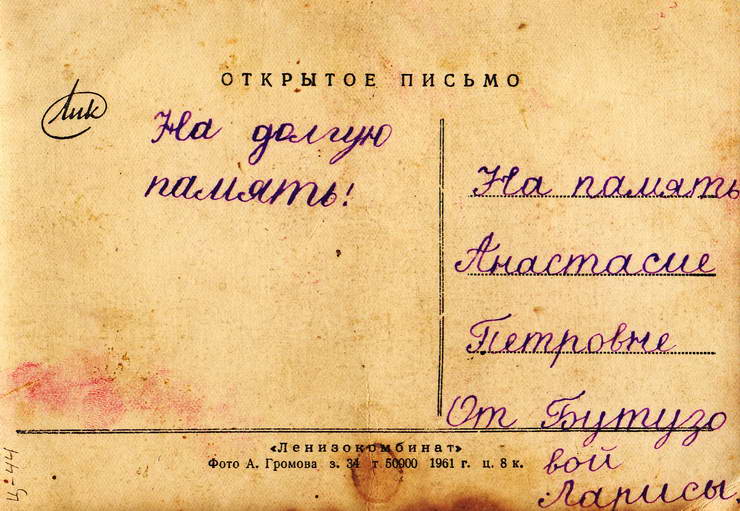 ОТКРЫТОЕ ПИСЬМО
Лик
На долгую
память!
На память
Анастасие
Петровне
От Бутузо
вой
Ларисы.
«Ленизокомбинат»
Фото А. Громова з. 34 т 50900 1961 г. ц. 8 к.
Ц-44